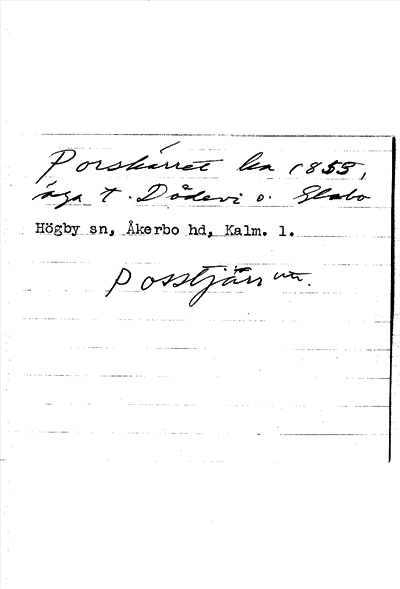 Porskärret lm 1855,
äga t. Dödevi o. Glabo
Högby sn, Åkerbo hd, Kalm. l.
posstjärr